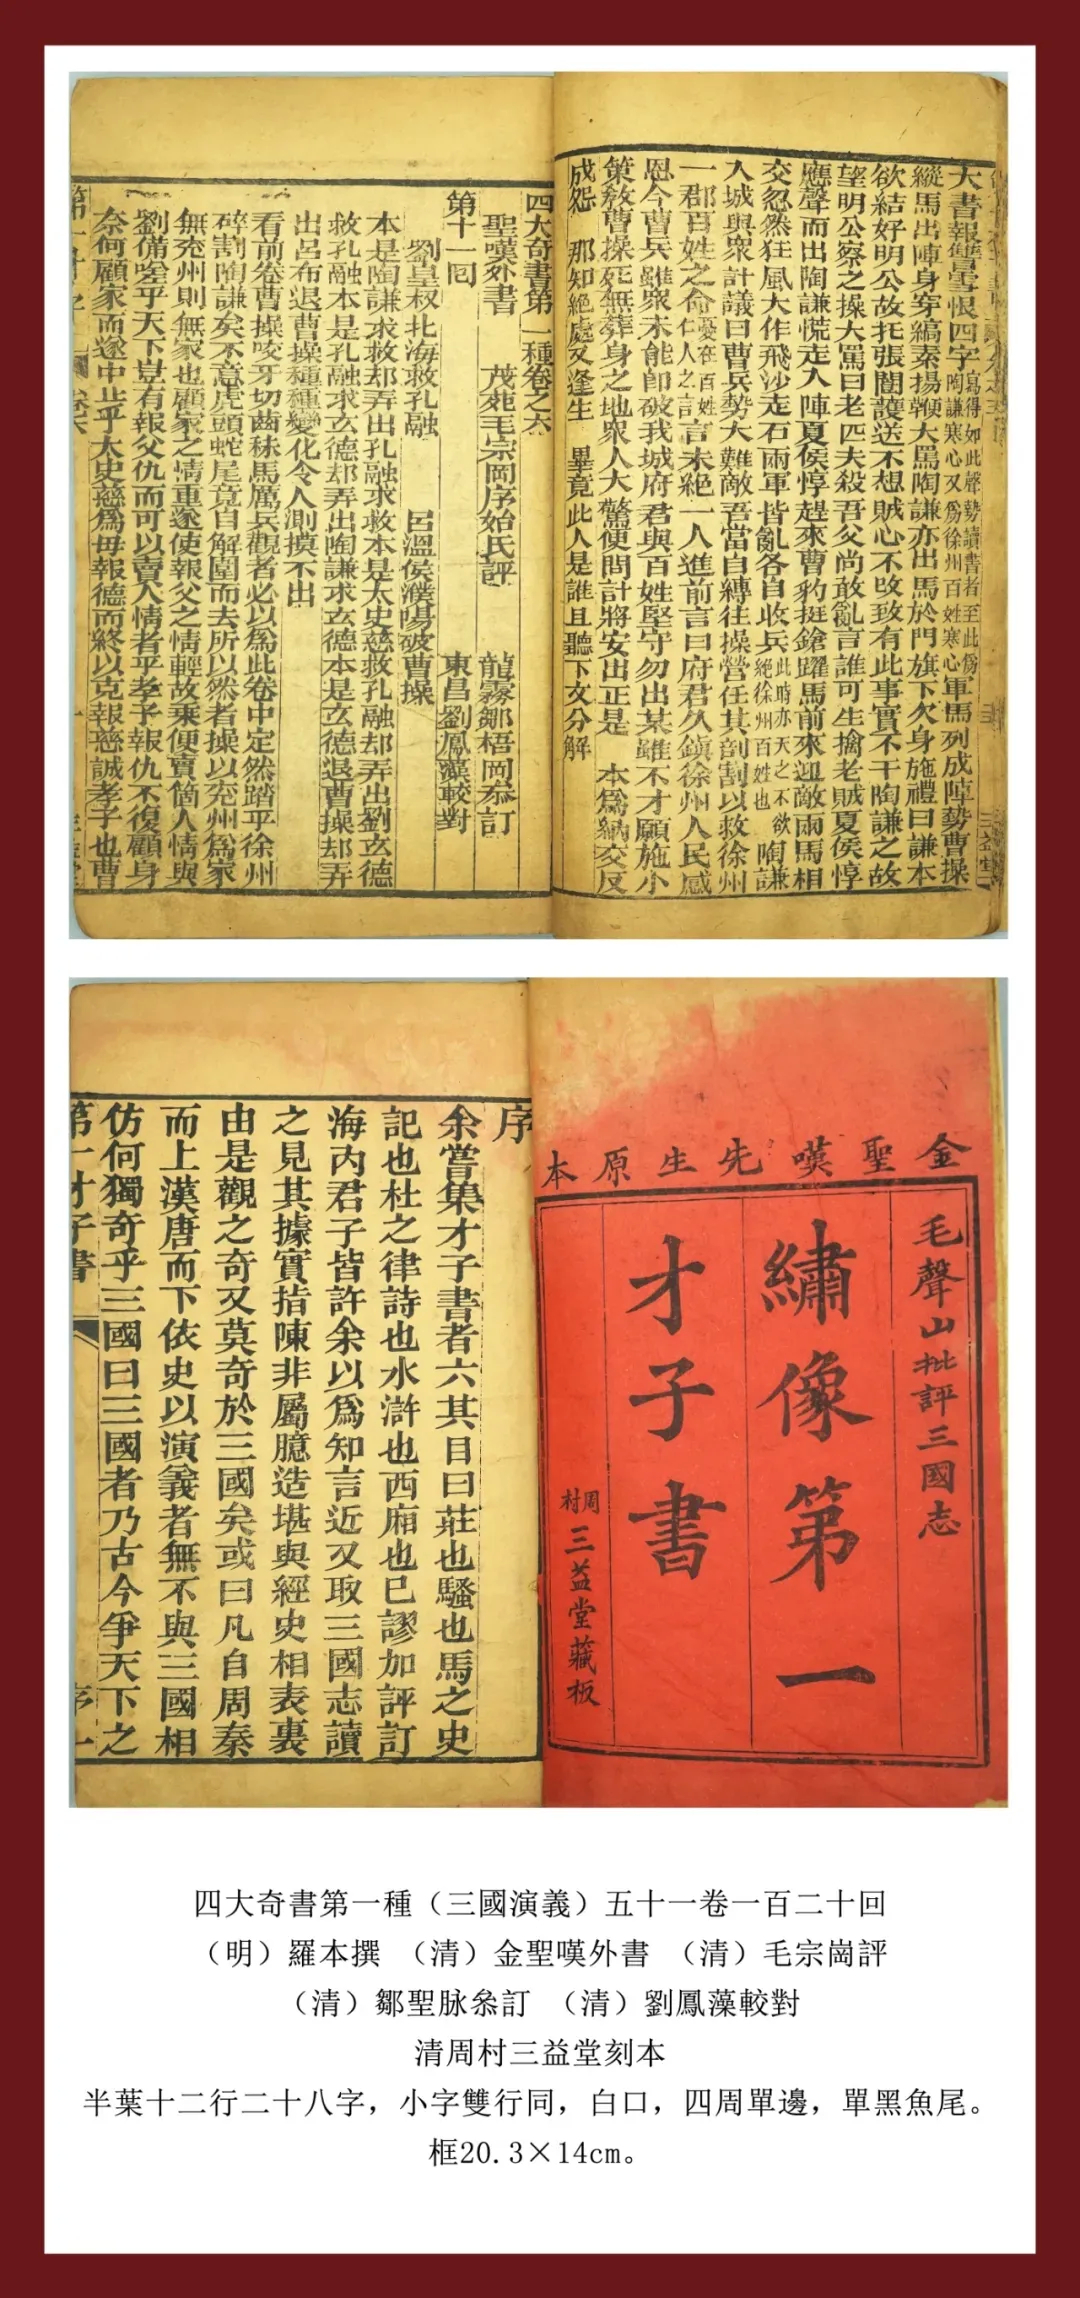 大書報讐雪恨四字寫得如此聲勢讀書者至此爲陶謙寒心又爲徐州百姓寒心軍馬列成陣勢曹操
縱馬出陣身穿縞素揚鞭大罵陶謙亦出馬於門旗下欠身施禮曰謙本
欲結好明公故托張闓護送不想賊心不改致有此事實不干陶謙之故
望明公察之操大罵曰老匹夫殺吾父尚敢亂言誰可生擒老賊夏侯惇
應聲而出陶謙慌走入陣夏侯惇趕來曹豹挺鎗躍馬前來迎敵兩馬相
交忽然狂風大作飛沙走石兩軍皆亂各自收兵此時亦天之不欲絕徐州百姓也陶謙
入城與眾計議曰曹兵勢大難敵吾當自縛往操營任其剖割以救徐州
一郡百姓之命憂在百姓仁人之言言未絕一人進前言曰府君久鎮徐州人民感
恩今曹兵雖眾未能卽破我城府君與百姓堅守勿出某雖不才願施小
策教曹操死無葬身之地眾人大驚便問計將安出正是 本爲納交反
成怨 那知絕處又逢生 畢竟此人是誰且聽下文分解
四大奇書第一種卷之六
聖嘆外書 茂苑毛宗岡序始氏評 龍霧鄒梧岡叅訂
東昌劉鳳藻較對
第十一囘
劉皇叔北海救孔融 呂溫侯濮陽破曹操
本是陶謙求救却弄出孔融求救本是太史慈救孔融却弄出劉玄德
救孔融本是孔融求玄德却弄出陶謙求玄德本是玄德退曹操却弄
出呂布退曹操種種變化令人測摸不出
看前卷曹操咬牙切齒秣馬厲兵觀者必以爲此卷中定然踏平徐州
碎割陶謙矣不意虎頭蛇尾竟自解圍而去所以然者操以兖州爲家
無兖州則無家也顧家之情重遂使報父之情輕故乘便賣個人情與
劉備嗟乎天下豈有報父仇而可以賣人情者乎孝子報仇不復顧身
奈何顧家而遂中止乎太史慈爲母報德而終以克報慈誠孝子也曹
金聖嘆先生原本
毛聲山批評三國志
繡像第一
才子書
周村三益堂藏板
序
余嘗集才子書者六其目曰莊也騷也馬之史
記也杜之律詩也水滸也西廂也已謬加評訂
海内君子皆許余以爲知言近又取三國志讀
之見其據實指陳非屬臆造堪與經史相表裏
由是觀之奇又莫奇於三國矣或曰凡自周秦
而上漢唐而下依史以演義者無不與三國相
仿何獨奇乎三國曰三國者乃古今爭天下之
第一才子書 序 一
四大奇書第一種（三國演義）五十一卷一百二十回
（明）羅本撰 （清）金聖嘆外書 （清）毛宗崗評
（清）鄒聖脉叅訂 （清）劉鳳藻較對
清周村三益堂刻本
半葉十二行二十八字，小字雙行同，白口，四周單邊，單黑魚尾。
框20.3×14cm。